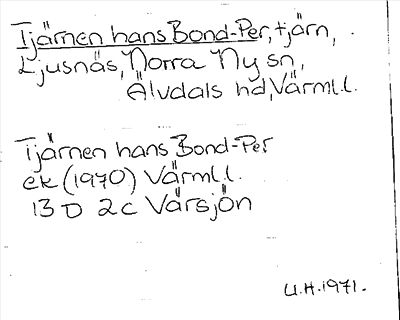 Tjärnen hans Bond-Per, tjärn,
Ljusnäs, Norra Ny sn,
Älvdals hd, Värml.l.
Tjärnen hans Bond-Per
ek (1970) Värml.l.
13 D 2c Vårsjön
U.H. 1971.